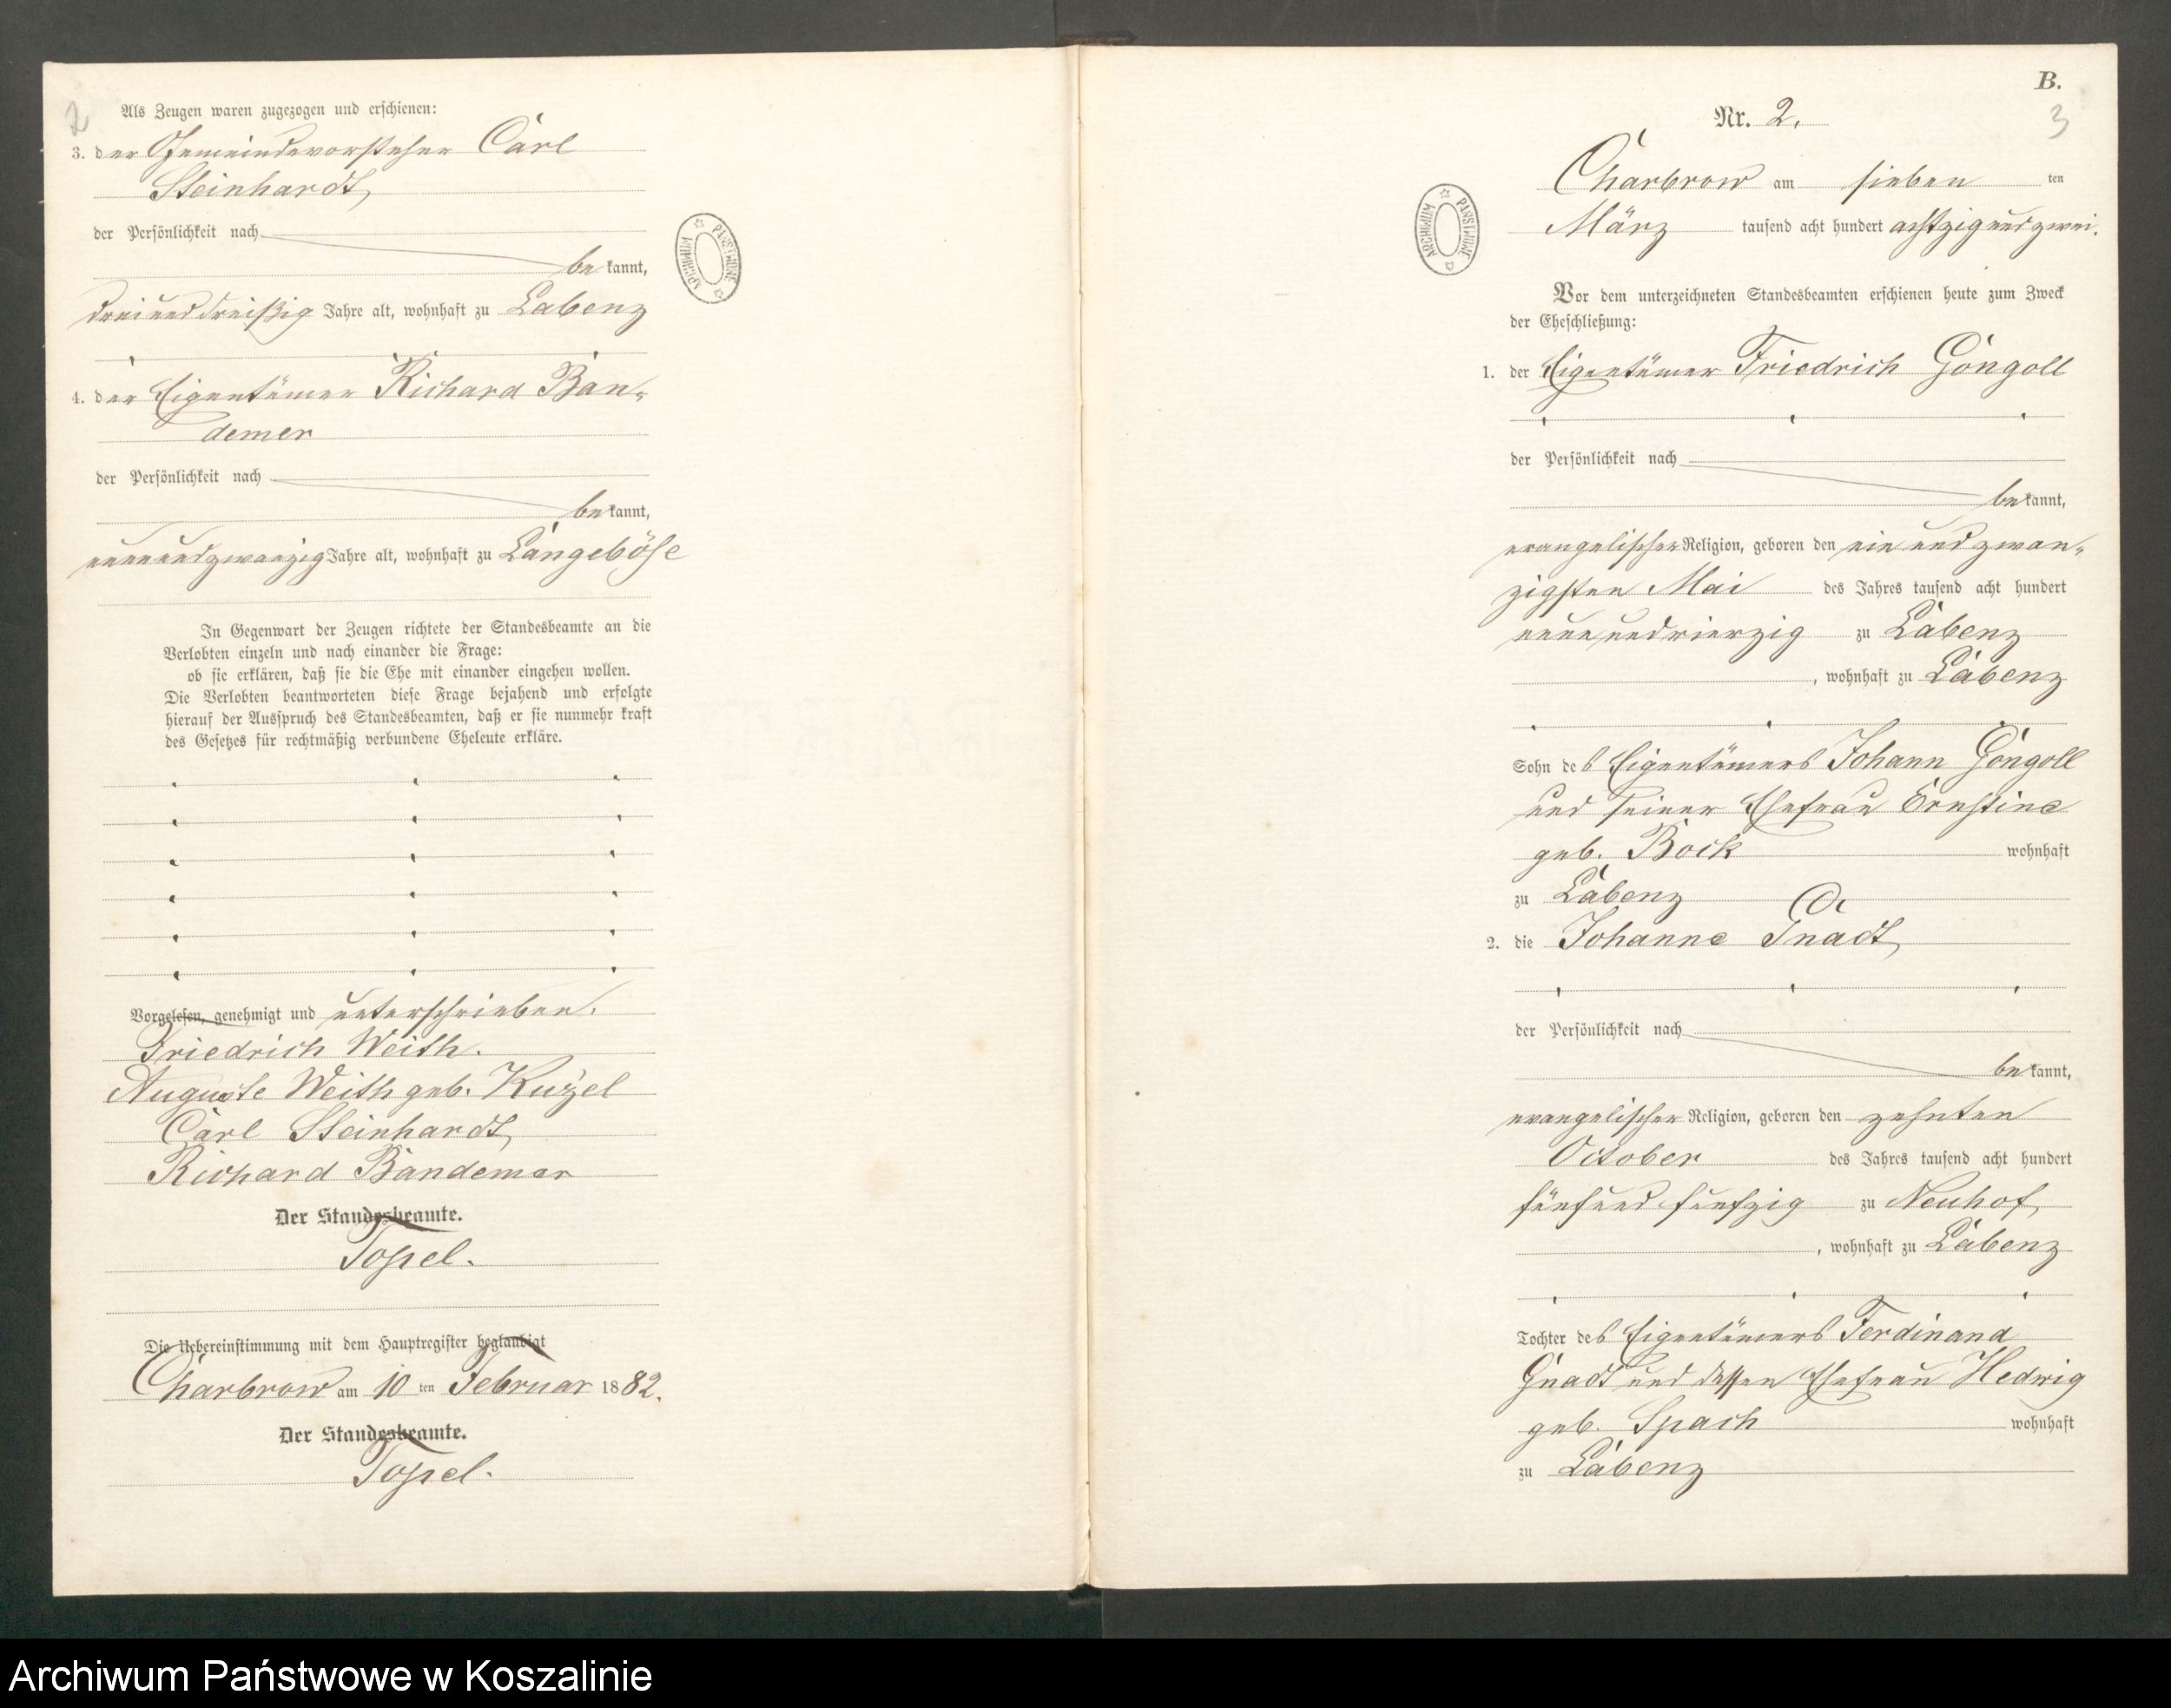 2
Als Zeugen waren zugezogen und erschienen:
3. der Gemeindevorsteher Carl
Steinhardt,
der Persönlichkeit nach
bekannt,
dreiunddreißig Jahre alt, wohnhaft zu Labenz
4. der Eigentümer Richard Ban-
demer
der Persönlichkeit nach
bekannt,
neunundzwanzig Jahre alt, wohnhaft zu Langeböse
In Gegenwart der Zeugen richtete der Standesbeamte an die
Verlobten einzeln und nach einander die Frage:
ob sie erklären, daß sie die Ehe mit einander eingehen wollen.
Die Verlobten beantworteten diese Frage bejahend und erfolgte
hierauf der Ausspruch des Standesbeamten, daß er sie nunmehr kraft
des Gesetzes für rechtmäßig verbundene Eheleute erkläre.
Vorgelesen, genehmigt und unterschrieben.
Friedrich Weith.
Auguste Weith geb. Kuzel
Carl Steinhardt,
Richard Bandemer
Der Standesbeamte.
Topel.
Die Uebereinstimmung mit dem Hauptregister beglaubigt
Charbrow am 10 ten Februar 1882.
Der Standesbeamte.
Topel.
ARCHIWUM PAŃSTWOWE
B.
3
Nr. 2.
Charbrow am sieben ten
März tausend acht hundert achtzig und zwei.
ARCHIWUM PAŃSTWOWE
Vor dem unterzeichneten Standesbeamten erschienen heute zum Zweck
der Eheschließung:
1. der Eigentümer Friedrich Göngoll
der Persönlichkeit nach
bekannt,
evangelischer Religion, geboren den ein und zwan-
zigsten Mai des Jahres tausend acht hundert
neunundvierzig zu Labenz
, wohnhaft zu Labenz
Sohn des Eigentümers Johann Göngoll
und seiner Ehefrau Ernstine
geb. Bock wohnhaft
zu Labenz
G.
2. die Johanne Gnadt,
der Persönlichkeit nach
bekannt,
evangelischer Religion, geboren den zehnten
October des Jahres tausend acht hundert
fünfund fünfzig zu Neuhof,
, wohnhaft zu Labenz
Tochter des Eigentümers Ferdinand
Gnadt und dessen Ehefrau Hedwig
geb. Spach wohnhaft
zu Labenz
Archiwum Państwowe w Koszalinie